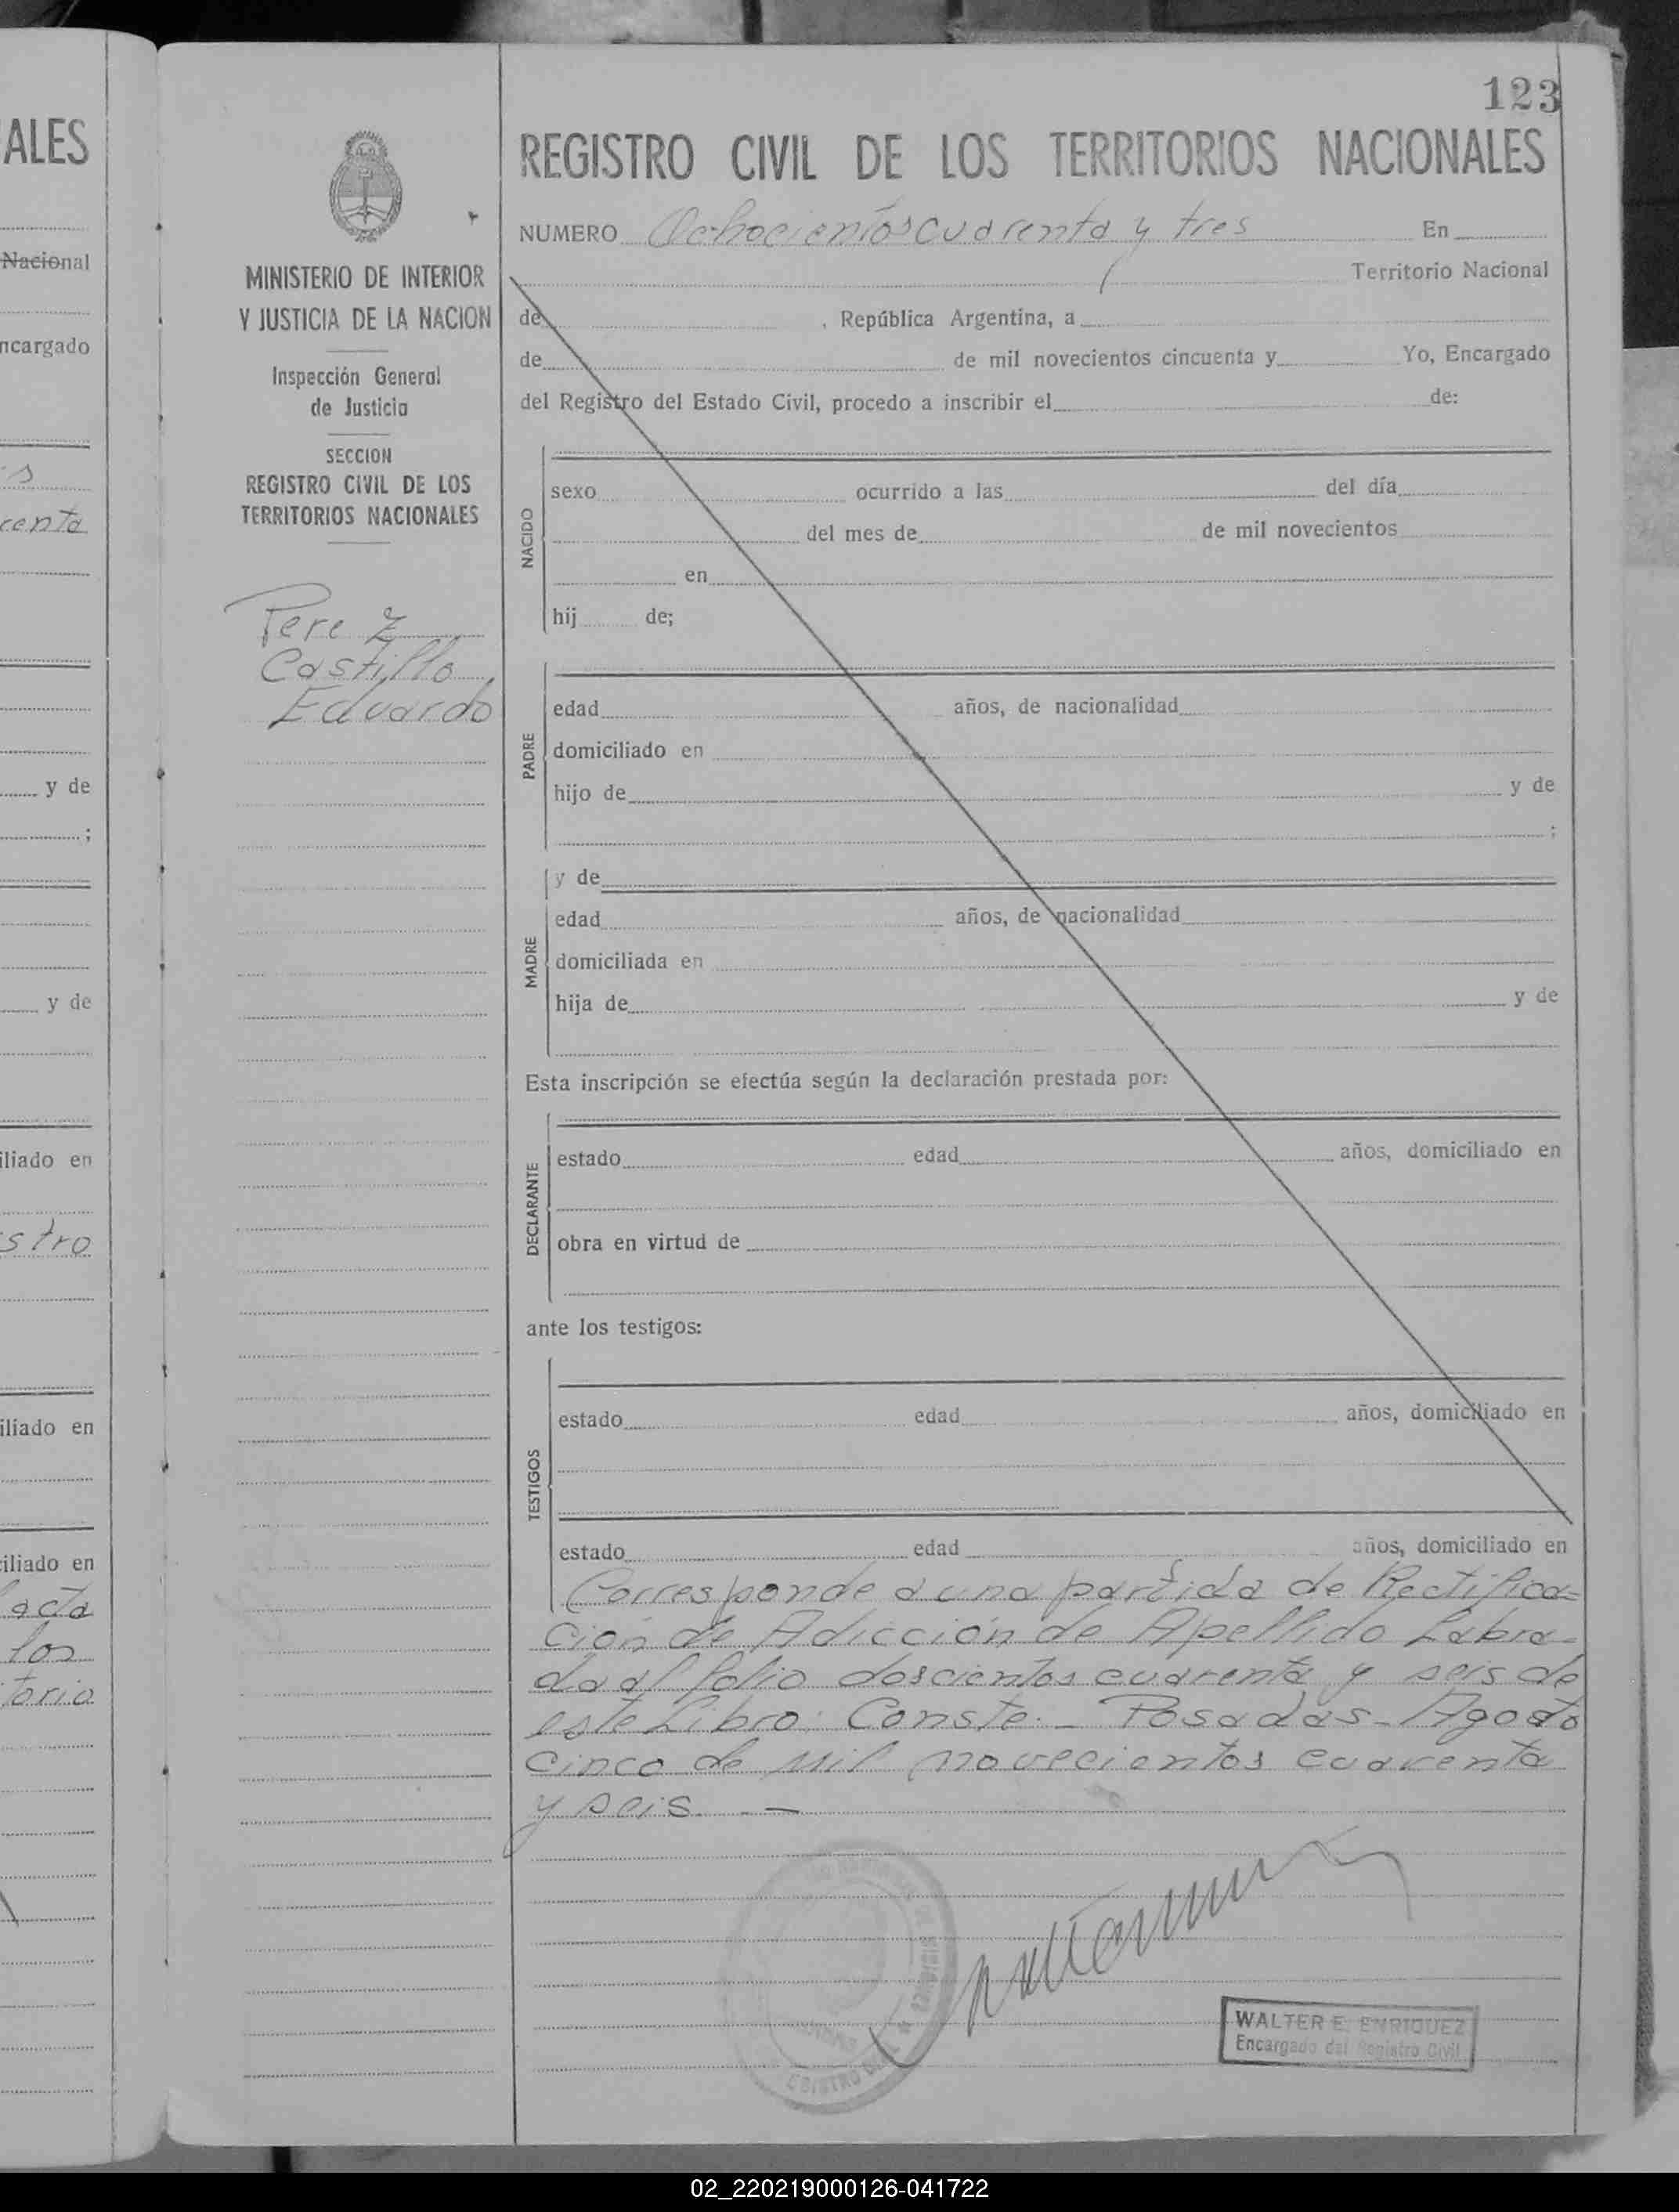 ALES
Nacional
ncargado
s
renta
y de
;
y de
iliado en
stro
iliado en
iliado en
acta
los
torio
MINISTERIO DE INTERIOR
Y JUSTICIA DE LA NACION
Inspección General
de Justicia
SECCION
REGISTRO CIVIL DE LOS
TERRITORIOS NACIONALES
Perez
Castillo
Eduardo
123
REGISTRO CIVIL DE LOS TERRITORIOS NACIONALES
NUMERO Ochocientos cuarenta y tres En
Territorio Nacional
de , República Argentina, a
de de mil novecientos cincuenta y Yo, Encargado
del Registro del Estado Civil, procedo a inscribir el de:
NACIDO
sexo ocurrido a las del día
del mes de de mil novecientos
en
hij de;
PADRE
edad años, de nacionalidad
domiciliado en
hijo de y de
;
y de
MADRE
edad años, de nacionalidad
domiciliada en
hija de y de
Esta inscripción se efectúa según la declaración prestada por:
DECLARANTE
estado edad años, domiciliado en
obra en virtud de
ante los testigos:
TESTIGOS
estado edad años, domiciliado en
estado edad años, domiciliado en
Corresponde a una partida de Rectifica=
ción de Adicción de Apellido Labra-
da al folio doscientos cuarenta y seis de
este Libro: Conste.- Posadas- Agosto
cinco de mil novecientos cuarenta
y seis. —
WALTER E. ENRIQUEZ
Encargado del Registro Civil
02_220219000126-041722